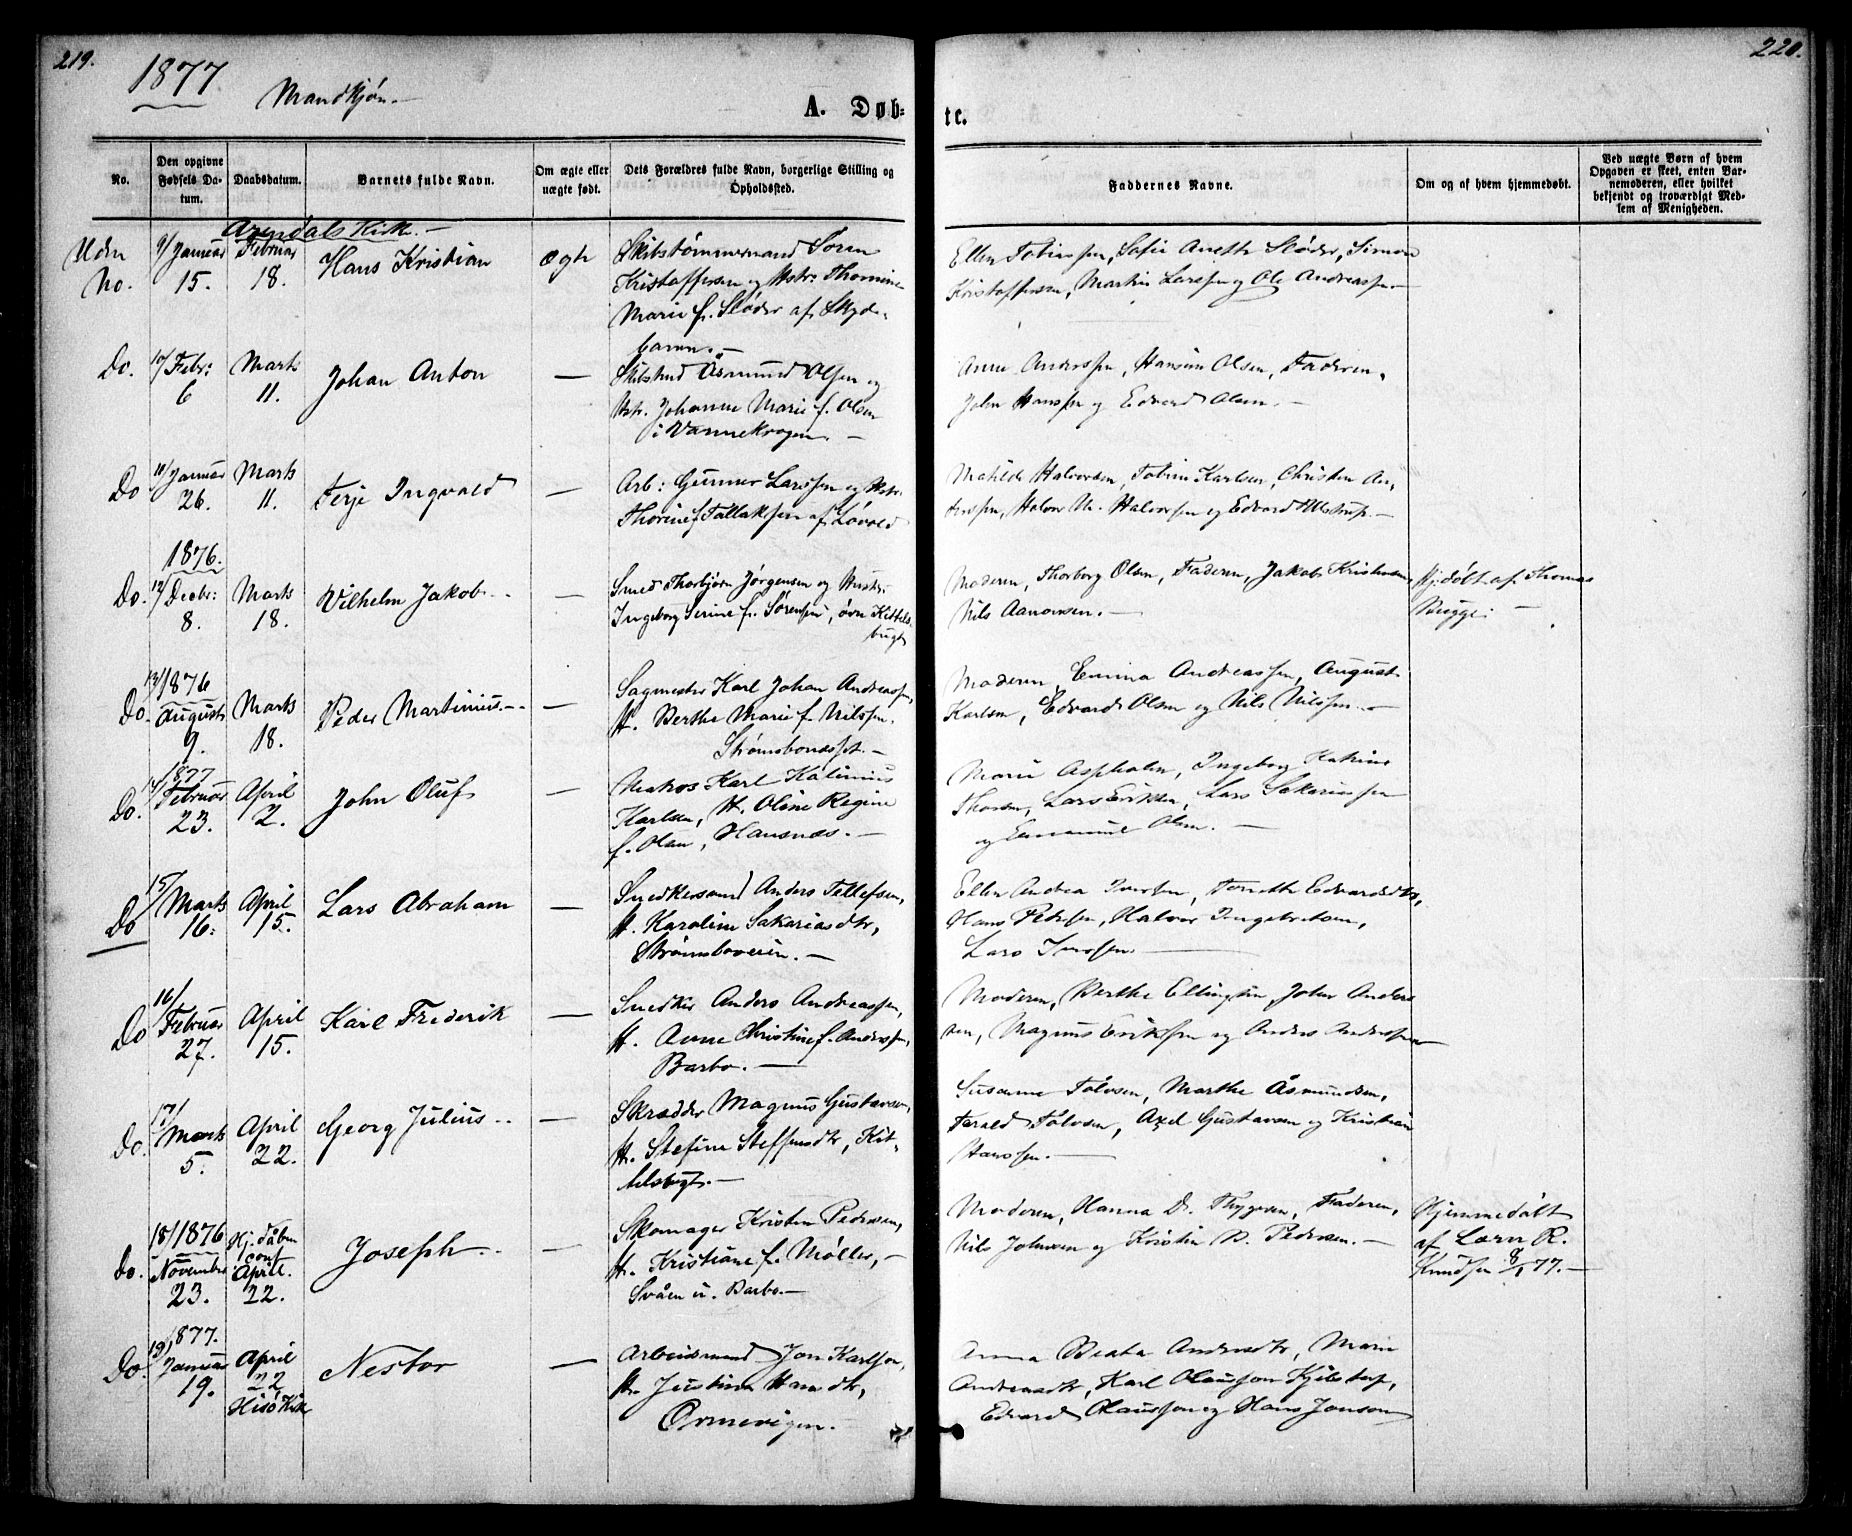 219.
220.
1877
Mandkjøn.
A. Døb-
te.
No.
Den opgivne Fødsels Datum.
Daabsdatum.
Barnets fulde Navn.
Om ægte eller uægte født.
Dets Forældres fulde Navn, borgerlige Stilling og Opholdssted.
Faddernes Navne.
Om og af hvem hjemmedøbt.
Ved uægte Børn af hvem Opgaven er skeet, enten Barnemoderen, eller hvilket bekjendt og troværdigt Medlem af Menigheden.
Arendals Kirke.
Uden No.
9/ Januar 15.
Februar 18.
Hans Kristian
ægte
Skibstømmermand Søren
Kristoffersen og Hstr: Thomine
Marie f. Sløder af Skyde-
banen.
Ellen Tobiassen, Sofie Anette Sløder, Simon
Kristoffersen, Martin Larssen og Ole Andreassen
Do.
10/ Febr: 6
Marts 11.
Johan Anton
—
Åsmund Olsen og
Hstr. Johanne Marie f. Olsen
i Vannekrogen. —
Anne Anderssen, Hansine Olsen, Faderen,
John Hanssen og Edvard Olsen. —
Do
11/ Januar 26.
Marts 11.
Terje Ingvald
—
Arb: Gunner Larssen og Hstr.
Thorine f. Tallaksen af Løvold
Matilde Halvorsen, Tobine Karlsen, Christen An-
derssen, Halvor N. Halvorsen og Edvard Ulstrup. —
Do.
1876.
12/ Decbr: 8.
Marts 18.
Vilhelm Jakob
—
Smed Thorbjørn Jørgensen og Hustr:
Ingeborg Serine f. Sørensen, øvre Kittels-
bugt
Moderen, Thorborg Olsen, Faderen, Jakob Kristensen,
Nils Aanonsen. —
Hj. døbt af Thomas
Bugge. —
Do.
13/ 1876
August 9.
Marts 18.
Peder Martinius
—
Sagmester Karl Johan Andreassen,
H. Berthe Marie f. Nilssen.
Strømsbonæsset. —
Moderen, Emma Andreassen, August
Karlsen, Edvard Olsen og Nils Nilssen. —
Do.
14/ 1877
Februar 23.
April 2.
John Oluf
—
Matros Karl Kalinius
Karlsen, H. Oline Regine
f. Olsen, Hansnæs. —
Marie Aspholm, Ingeborg Katrine
Thorsen, Lars Eriksen, Lars Sakariassen
og Emanuel Olsen. —
Do
15/ Marts 16.
April 15.
Lars Abraham
—
Snedkersvend Anders Tellefsen,
H. Karoline Sakariasdtr,
Strømsboveien. —
Ellen Andrea Iverssen, Tomette Edvardsdtr,
Hans Peterssen, Halvor Ingebretsen,
Lars Iverssen. —
Do
16/ Februar 27.
April 15.
Karl Frederik
—
Snedker Anders Andreassen,
H. Anne Christine f. Anderssen,
Barbo. —
Moderen, Berthe Ellingsen, John Anders-
sen, Magnus Eriksen og Anders Anderssen
Do.
17/ Marts 5.
April 22.
Georg Julius
—
Skrædder Magnus Gustavsen,
H. Stefine Steffensdtr, Kit-
telsbugt. —
Susanne Tolvsen, Marthe Åsmundsen,
Terald Tolvsen, Axel Gustavsen og Kristian
Hanssen. —
Do.
18/ 1876
November 23.
Hj. dåben
conf
April. 22.
Joseph
—
Skomager Kristen Pedersen,
H. Kristiane f. Møller, —
Svåen i. Barbo. —
Moderen, Hanna D. Thygesen, Faderen,
Nils Johnsen og Kristin B. Pedersen. —
Hjemmedøbt
af Lærer R.
Knudsen 8/1 77. —
Do.
19/ 1877.
Januar 19.
April 22
Hisø Kirke
Nestor
—
Arbeidsmand Jon Karlson,
H. Justina Hansdtr,
Ormevigen. —
Anna Beata Andersdtr, Marie
Andreasdtr, Karl Olausson Kjelstrup,
Edvard Olausson og Hans Jonson